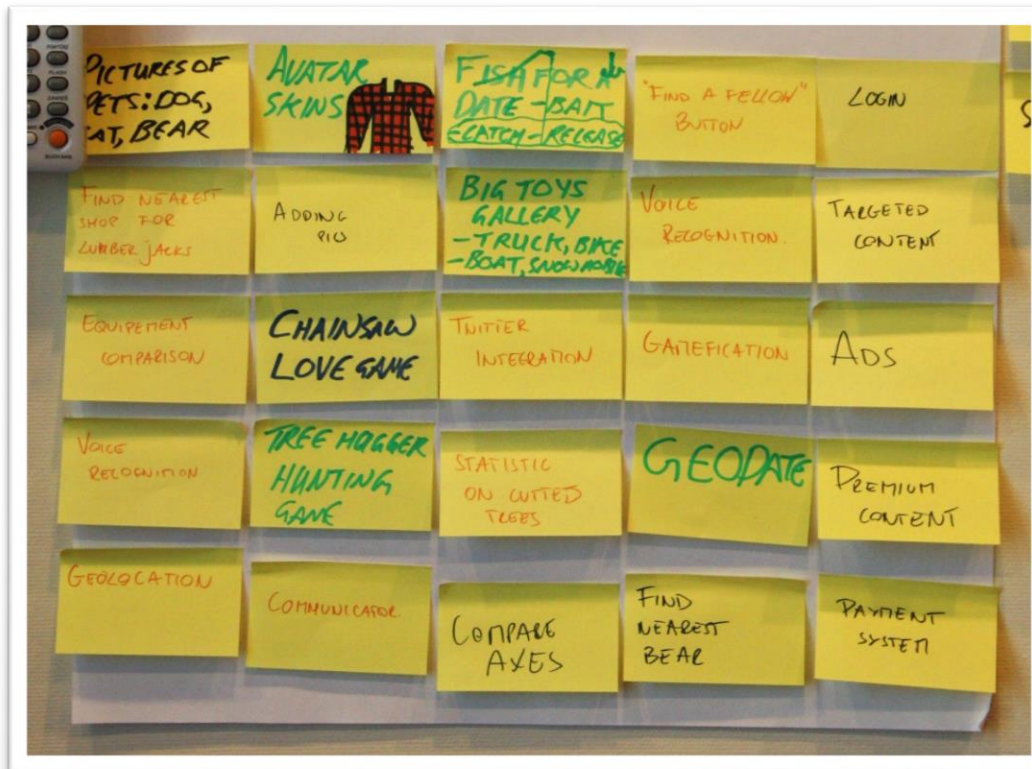 PICTURES OF
PETS: DOG,
CAT, BEAR
AVATAR
SKINS
FISH FOR A
DATE - BAIT
CATCH - RELEASE
"FIND A FELLOW"
BUTTON
LOGIN
FIND NEAREST
SHOP FOR
LUMBER JACKS
ADDING
PICS
BIG TOYS
GALLERY
- TRUCK, BIKE
- BOAT, SNOWMOBILE
VOICE
RECOGNITION.
TARGETED
CONTENT
EQUIPEMENT
COMPARISON
CHAINSAW
LOVE GAME
TWITTER
INTEGRATION
GAMEFICATION
ADS
VOICE
RECOGNITION
TREE HUGGER
HUNTING
GAME
STATISTIC
ON CUTTED
TREES
GEODATE
PREMIUM
CONTENT
GEOLOCATION
COMMUNICATOR.
COMPARE
AXES
FIND
NEAREST
BEAR
PAYMENT
SYSTEM